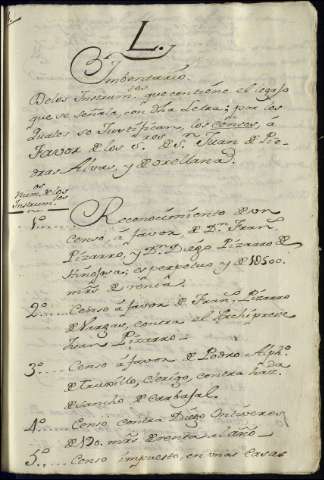 L.
Y
Imbentario.
De los Instrum.tos que contiene el legajo
que se señala con dha Letra; por los
quales se Justifican, los Censos, á
Favor de los S.res D.n Juan de Pie-
dras Alvas, y de Orellana.
Num.os de los
Instrum.tos
1º Reconocimiento de un
Censo, á favor de D.n Fran.co
Pizarro, y D.n Diego Pizarro de
Hinojosa; es perpetuo, y de 18500.
mrs de renta.
2º Censo á favor de Fran.co Pizarro
de Vargas, contra el Archipreste
Juan Pizarro.
3º Censo á favor de Pedro Alph.º
de Truxillo, Clerigo, contra haz.da
de Sancho de Carbajal.
4º Censo contra Diego Ontiveros
de mrs de renta al año
5º Censo impuesto, en unas Casas